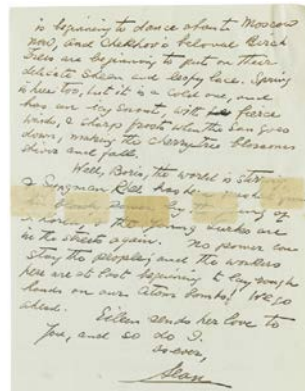 is beginning to dance about Moscow
now, and Chekhov's beloved Birch
Trees are beginning to put on their
delicate sheen and leafy lace. Spring
is here too, but it is a cold one, and
has an icy snout, with fierce
winds, & sharp frosts when the sun goes
down, making the cherrytree blossoms
shiver and fall.
Well, Boris, the world is
Syngman Rhee has been
of
Korea, & the young Turks are
in the streets again. No power can
stay the people; and the workers
here are at last beginning to lay rough
hands on our Atom Bombs! We go
ahead.
Eileen sends her love to
you, and so do I.
as ever,
Sean